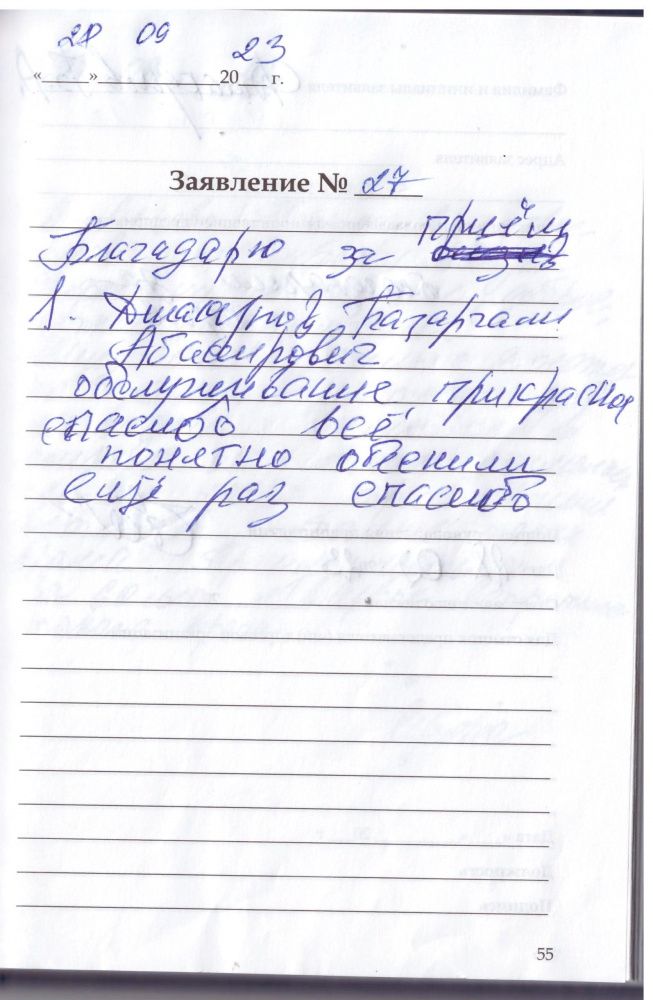 28 09 23
«____»____________20___ г.
Заявление № 27
Благадарю за приём
1. Базаргали
Абасирович
обслуживание прикрасное
спасибо всё
понятно обеснили
ещё раз спасибо
55